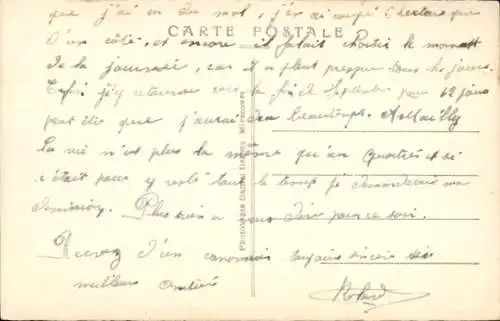 que j'ai eu du mal, j'en ai coupé 1 hectare que
CARTE POSTALE
d'un côté, et encore il fallait choisir le moment
de la journée, car il a plu presque tous les jours.
Enfin j'y retourne vers la fin de Septembre pour 12 jours
peut être que j'aurai du beau temps.
La vie n'est plus la même qu'au Quartier et si
c'était pour y rester tout le temps je demanderais ma
démission. Plus rien a vous dire pour ce soir.
Recevez d'un camarade toujours sincère ses
meilleures amitiés
Photographe Daniel Delboy, Mirecourt